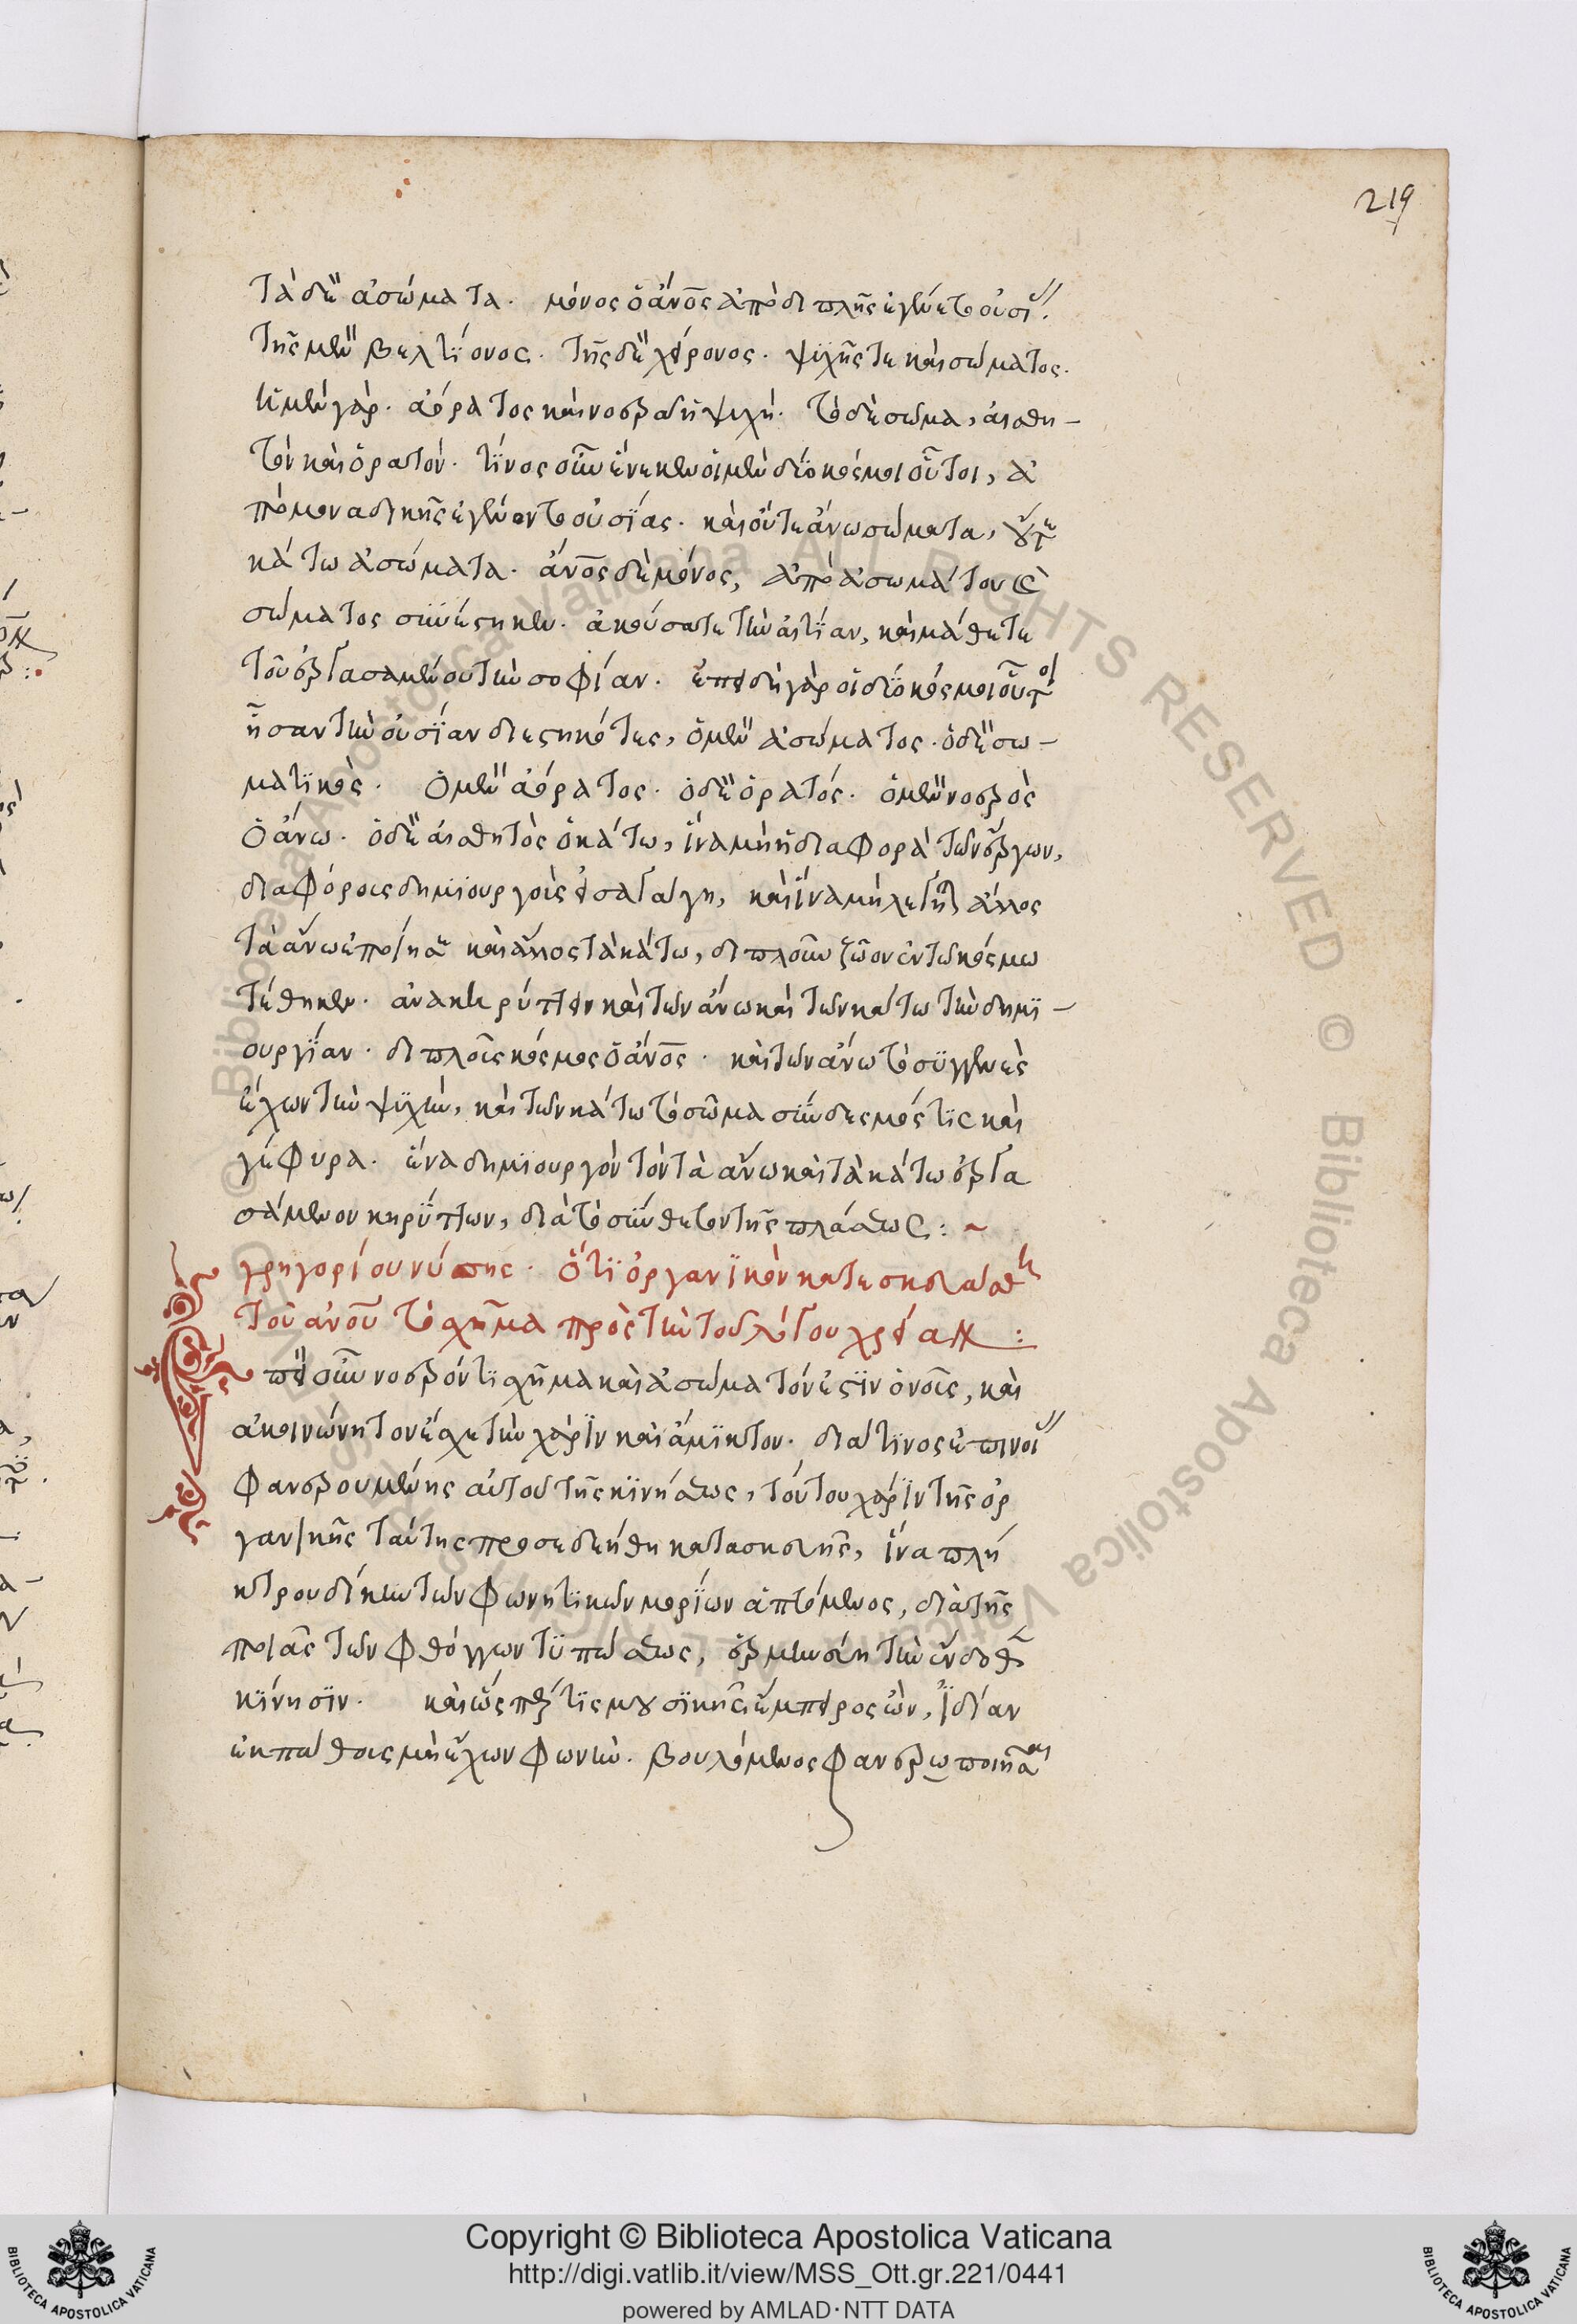 219
τὰ δὲ ἀσώματα. μόνος ὁ ἄνο̅ς ἀπὸ διπλῆς ἐγένετο οὐσί
τῆς μὲν βελτίονος. τῆς δὲ χείρονος. ψυχῆς τε καὶ σώματος.
ἡ μὲν γὰρ. ἀόρατος καὶ νοερὰ ἡ ψυχή. τὸ δὲ σῶμα, αἰσθη-
τὸν καὶ ὁρατόν. τίνος οὖν ἕνεκεν οἱ μὲν δύο κόσμοι οὗτοι, ἀ
πὸ μοναδικῆς ἐγένοντο οὐσίας. καὶ οὔτε ἄνω σώματα, οὔτε
κάτω ἀσώματα. ἄνο̅ς δὲ μόνος, ἀπὸ ἀσωμάτου καὶ
σώματος συνέστηκεν. ἀκούσατε τὴν αἰτίαν, καὶ μάθετε
τοῦ ἐργασαμένου τὴν σοφίαν. ἐπειδὴ γὰρ οἱ δύο κόσμοι οὗτοι
ἦσαν τὴν οὐσίαν διεστηκότες, ὁ μὲν ἀσώματος. ὁ δὲ σω-
ματικός. ὁ μὲν ἀόρατος. ὁ δὲ ὁρατός. ὁ μὲν νοερὸς
ὁ ἄνω. ὁ δὲ αἰσθητὸς ὁ κάτω, ἵνα μὴ ἡ διαφορὰ τῶν ἔργων,
διαφόροις δημιουργοὶς εἰσαγάγη, καὶ ἵνα μὴ λέγηται ἄλλος
τὰ ἄνω ἐποίησε καὶ ἄλλος τὰ κάτω, διπλοῦν ζῶον ἐν τῶ κόσμω
τέθηκεν. ἀνακηρύττειν καὶ τῶν ἄνω καὶ τῶν κάτω τὴν δημι-
ουργίαν. διπλοῖς κόσμος ὁ ἄνο̅ς. καὶ τῶν ἄνω τὸ συγγενὲς
ἔχων τὴν ψυχὴν, καὶ τῶν κάτω τὸ σῶμα σύνδεσμός τις καὶ
γέφυρα. ἕνα δημιουργὸν τὸν τὰ ἄνω καὶ τὰ κάτω ἐργα
σάμενον κηρύττων, διὰ τὸ σύνθετον τῆς πλάσεως: ~
γρηγορίου νύσσης. ὅτι ὀργανικὸν κατεσκευάσθη
τοῦ ἀνο̅υ τὸ σχῆμα πρὸς τὴν τοῦ λόγου χρείαν:
πεὶ οὖν νοερόν τι χρῆμα καὶ ἀσώματόν ἐστιν ὁ νοῦς, καὶ
ἀκοινώνητον ἔσχε τὴν χάριν καὶ ἄμικτον. διά τινος ἐπινοί
φανερουμένης αὐτοῦ τῆς κινήσεως, τούτου χάριν τῆς ὀρ
γανικῆς ταύτης προσεδεήθη κατασκευῆς, ἵνα πλή
κτρου δίκην τῶν φωνητικῶν μορίων ἁπτόμενος, διὰ τῆς
ποιᾶς τῶν φθόγγων τυπώσεως, ἑρμηνεύση τὴν ἔνδοθεν
κίνησιν. καὶ ὥσπερ τις μουσικῆς ἔμπειρος ὢν, ἰδίαν
ἐκ πάθοις μὴ ἔχων φωνὴν. βουλόμενος φανερὰν ποιῆσαι
Copyright © Biblioteca Apostolica Vaticana
http://digi.vatlib.it/view/MSS_Ott.gr.221/0441
powered by AMLAD·NTT DATA